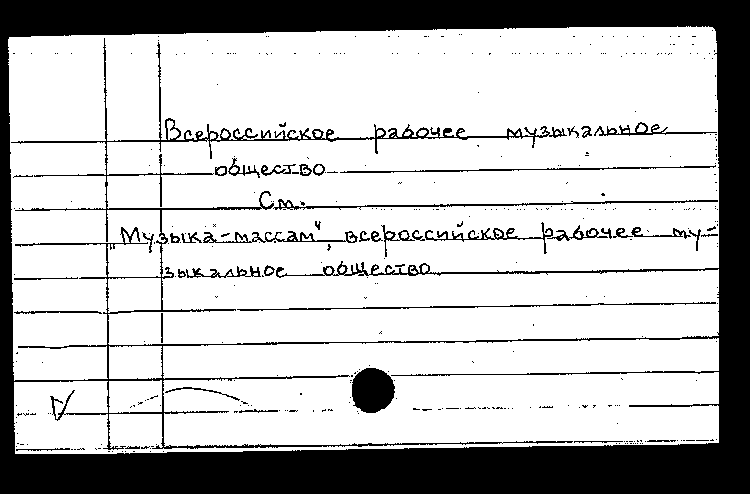 Всероссийское рабочее музыкальное
общество
См.
„Музыка-массам“, всероссийское рабочее му-
зыкальное общество